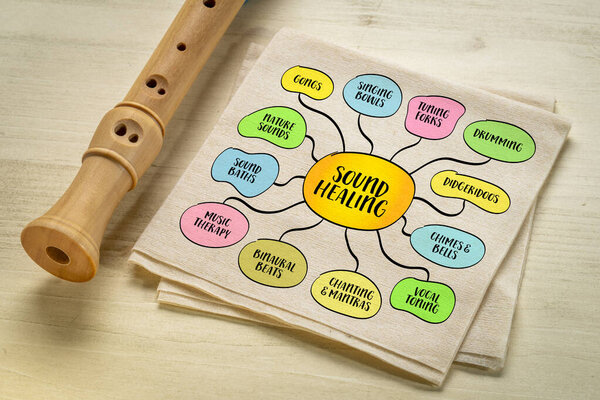 GONGS
SINGING
BOWLS
TUNING
FORKS
DRUMMING
NATURE
SOUNDS
SOUND
BATHS
SOUND
HEALING
DIDGERIDOOS
MUSIC
THERAPY
CHIMES &
BELLS
BINAURAL
BEATS
CHANTING
& MANTRAS
VOCAL
TONING